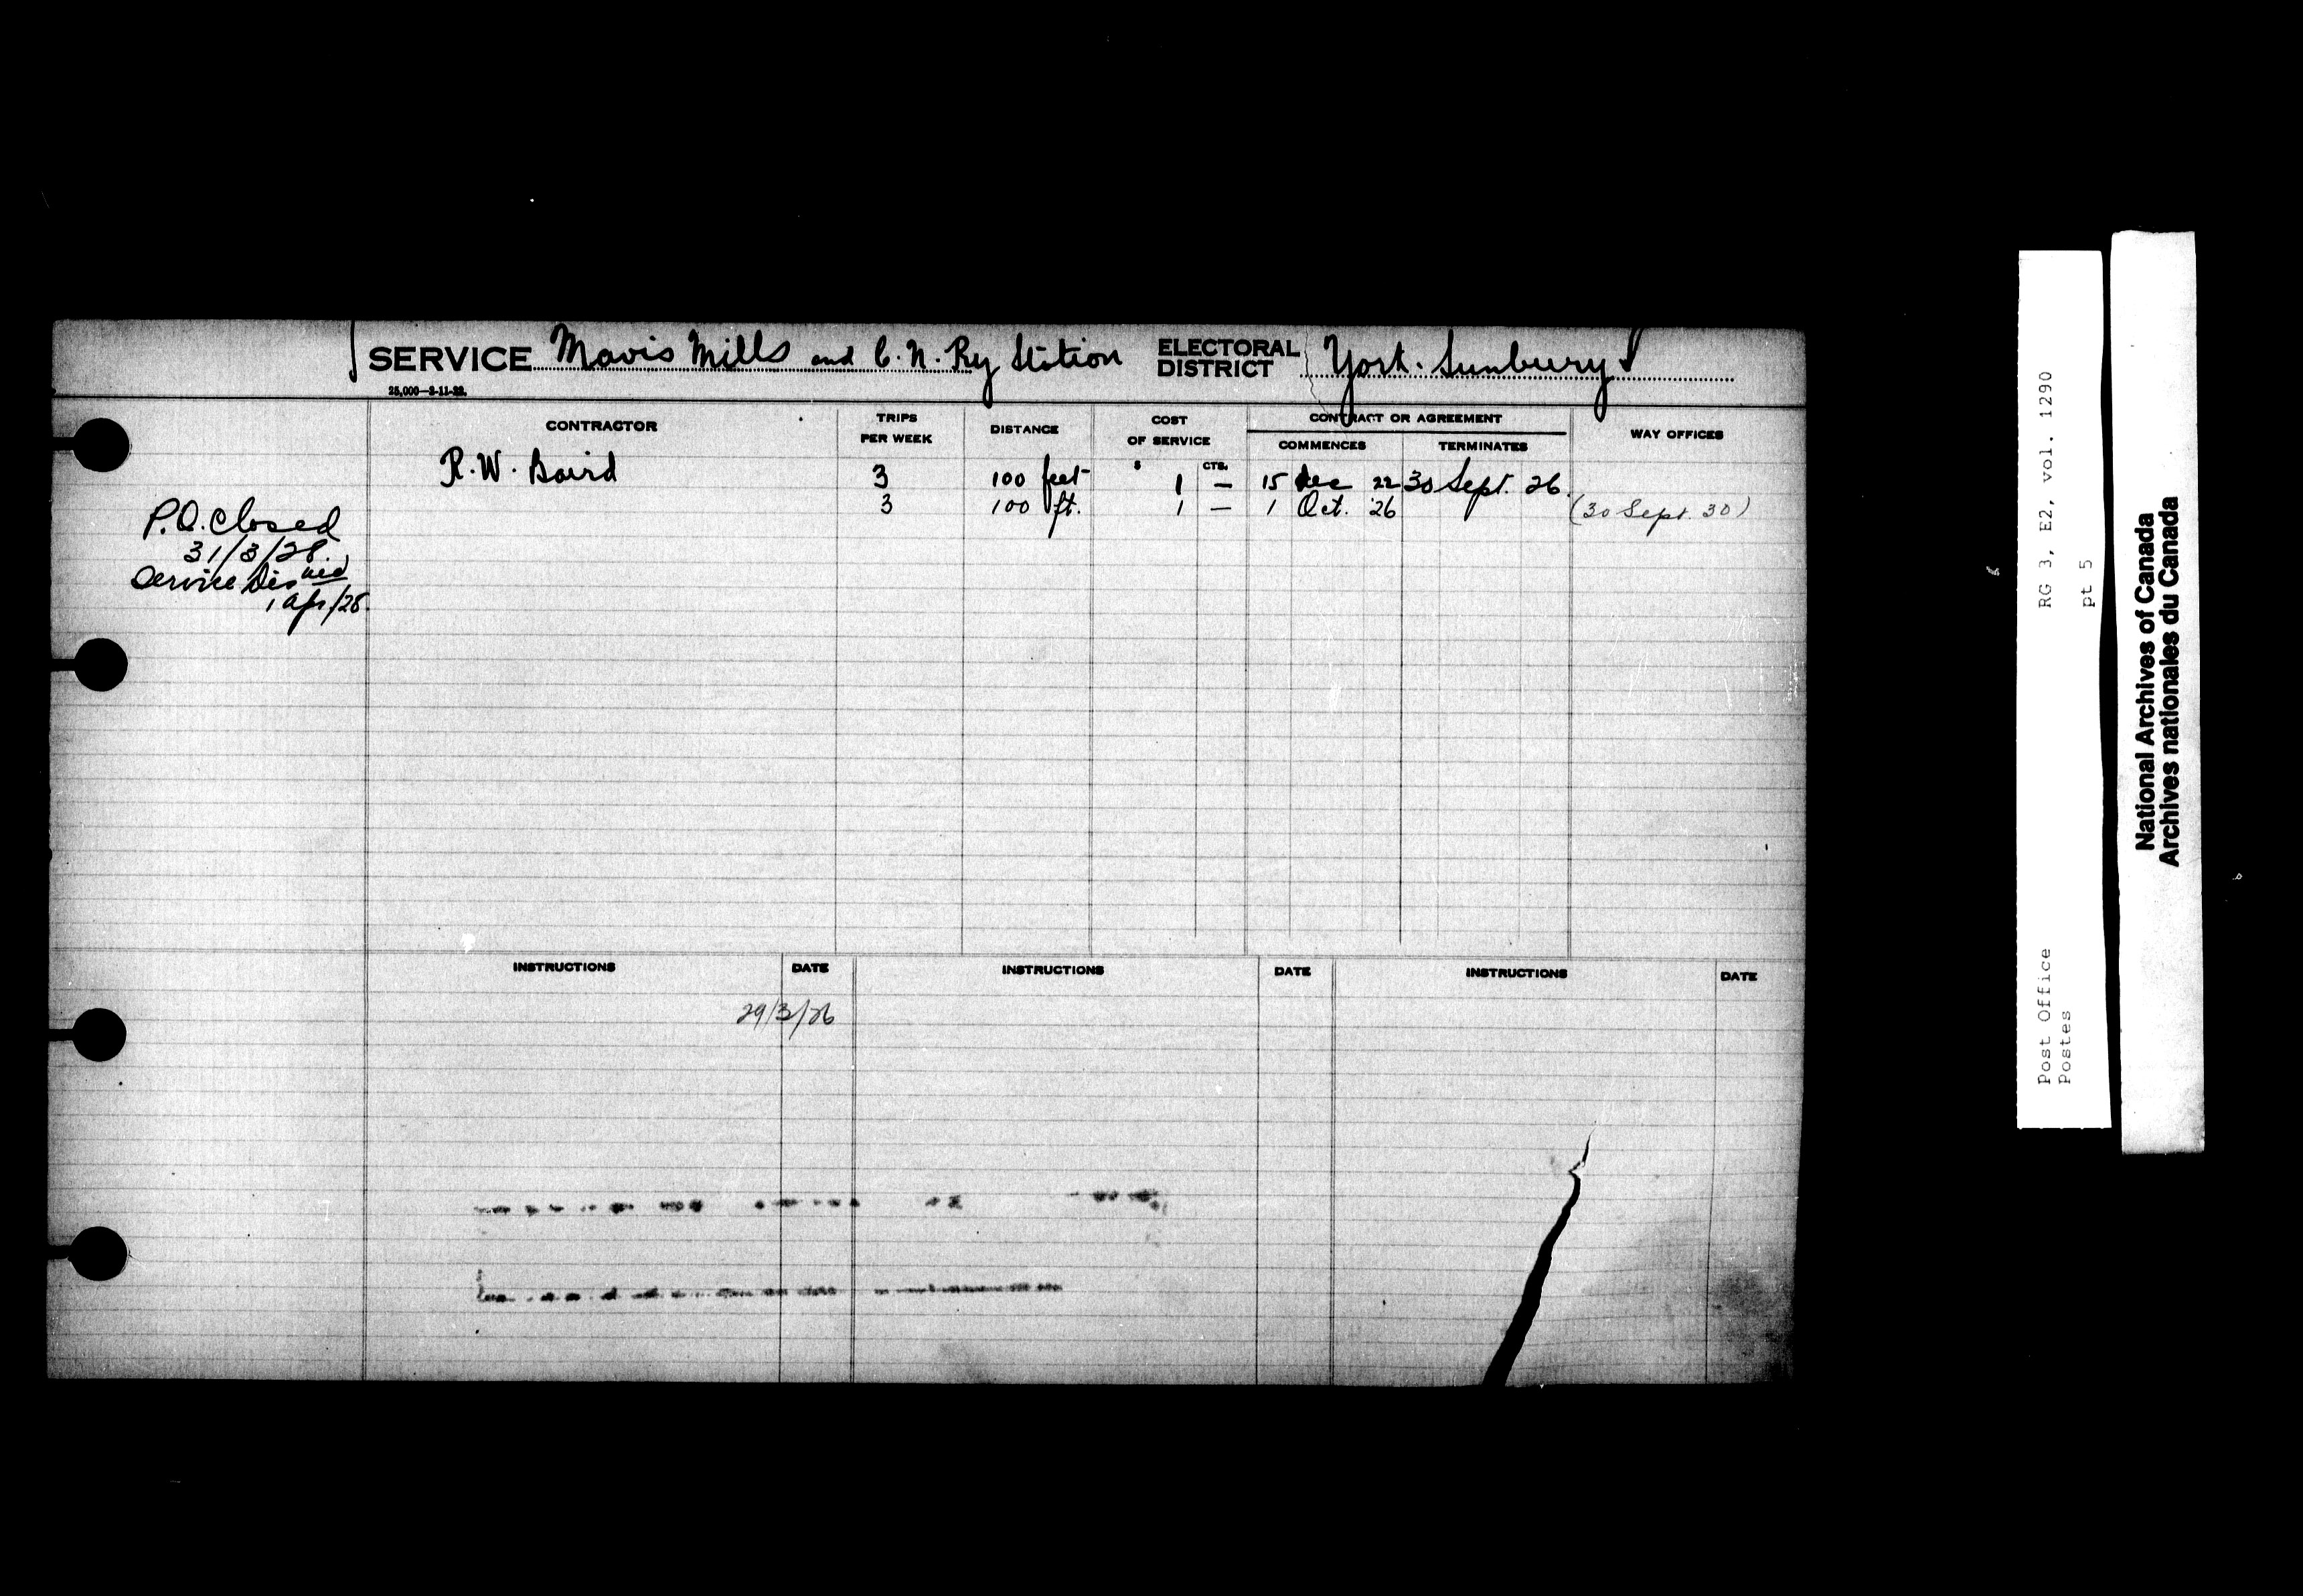 SERVICE Mavis Mills and C. N. Ry Station ELECTORAL DISTRICT York. Sunbury
25,000—2-11-22.
CONTRACTOR TRIPS PER WEEK DISTANCE COST OF SERVICE CONTRACT OR AGREEMENT WAY OFFICES
COMMENCES TERMINATES
$ CTS.
R. W. Baird 3 100 feet 1 — 15 Dec 22 30 Sept. 26.
3 100 ft. 1 — 1 Oct. '26 (30 Sept. 30)
P.O. Closed
31/3/28.
Service Dis ued
1 Apr/28.
INSTRUCTIONS DATE INSTRUCTIONS DATE INSTRUCTIONS DATE
29/3/26
RG 3, E2, vol. 1290
pt 5
Post Office
Postes
National Archives of Canada
Archives nationales du Canada